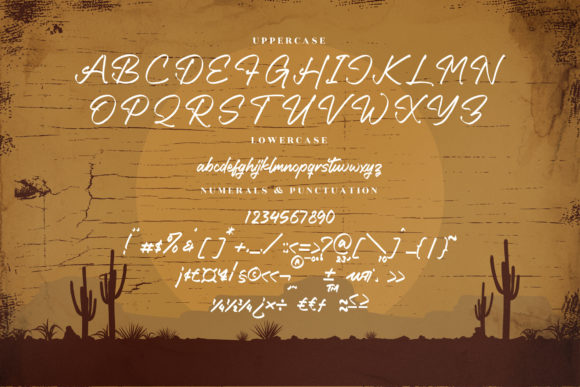 UPPERCASE
ABCDEFGHIJKLMN
OPQRSTUVWXYZ
LOWERCASE
abcdefghijklmnopqrstuvwxyz
NUMERALS & PUNCTUATION
1234567890
!"#$%&'()*+,-./:;<=>?@[\]^_{|}~
¡¢£¤¥¦§©«¬®¯°±²³´µ¶·¸¹º»™
¼½¾¿×÷ €€ƒ ≈≤≥